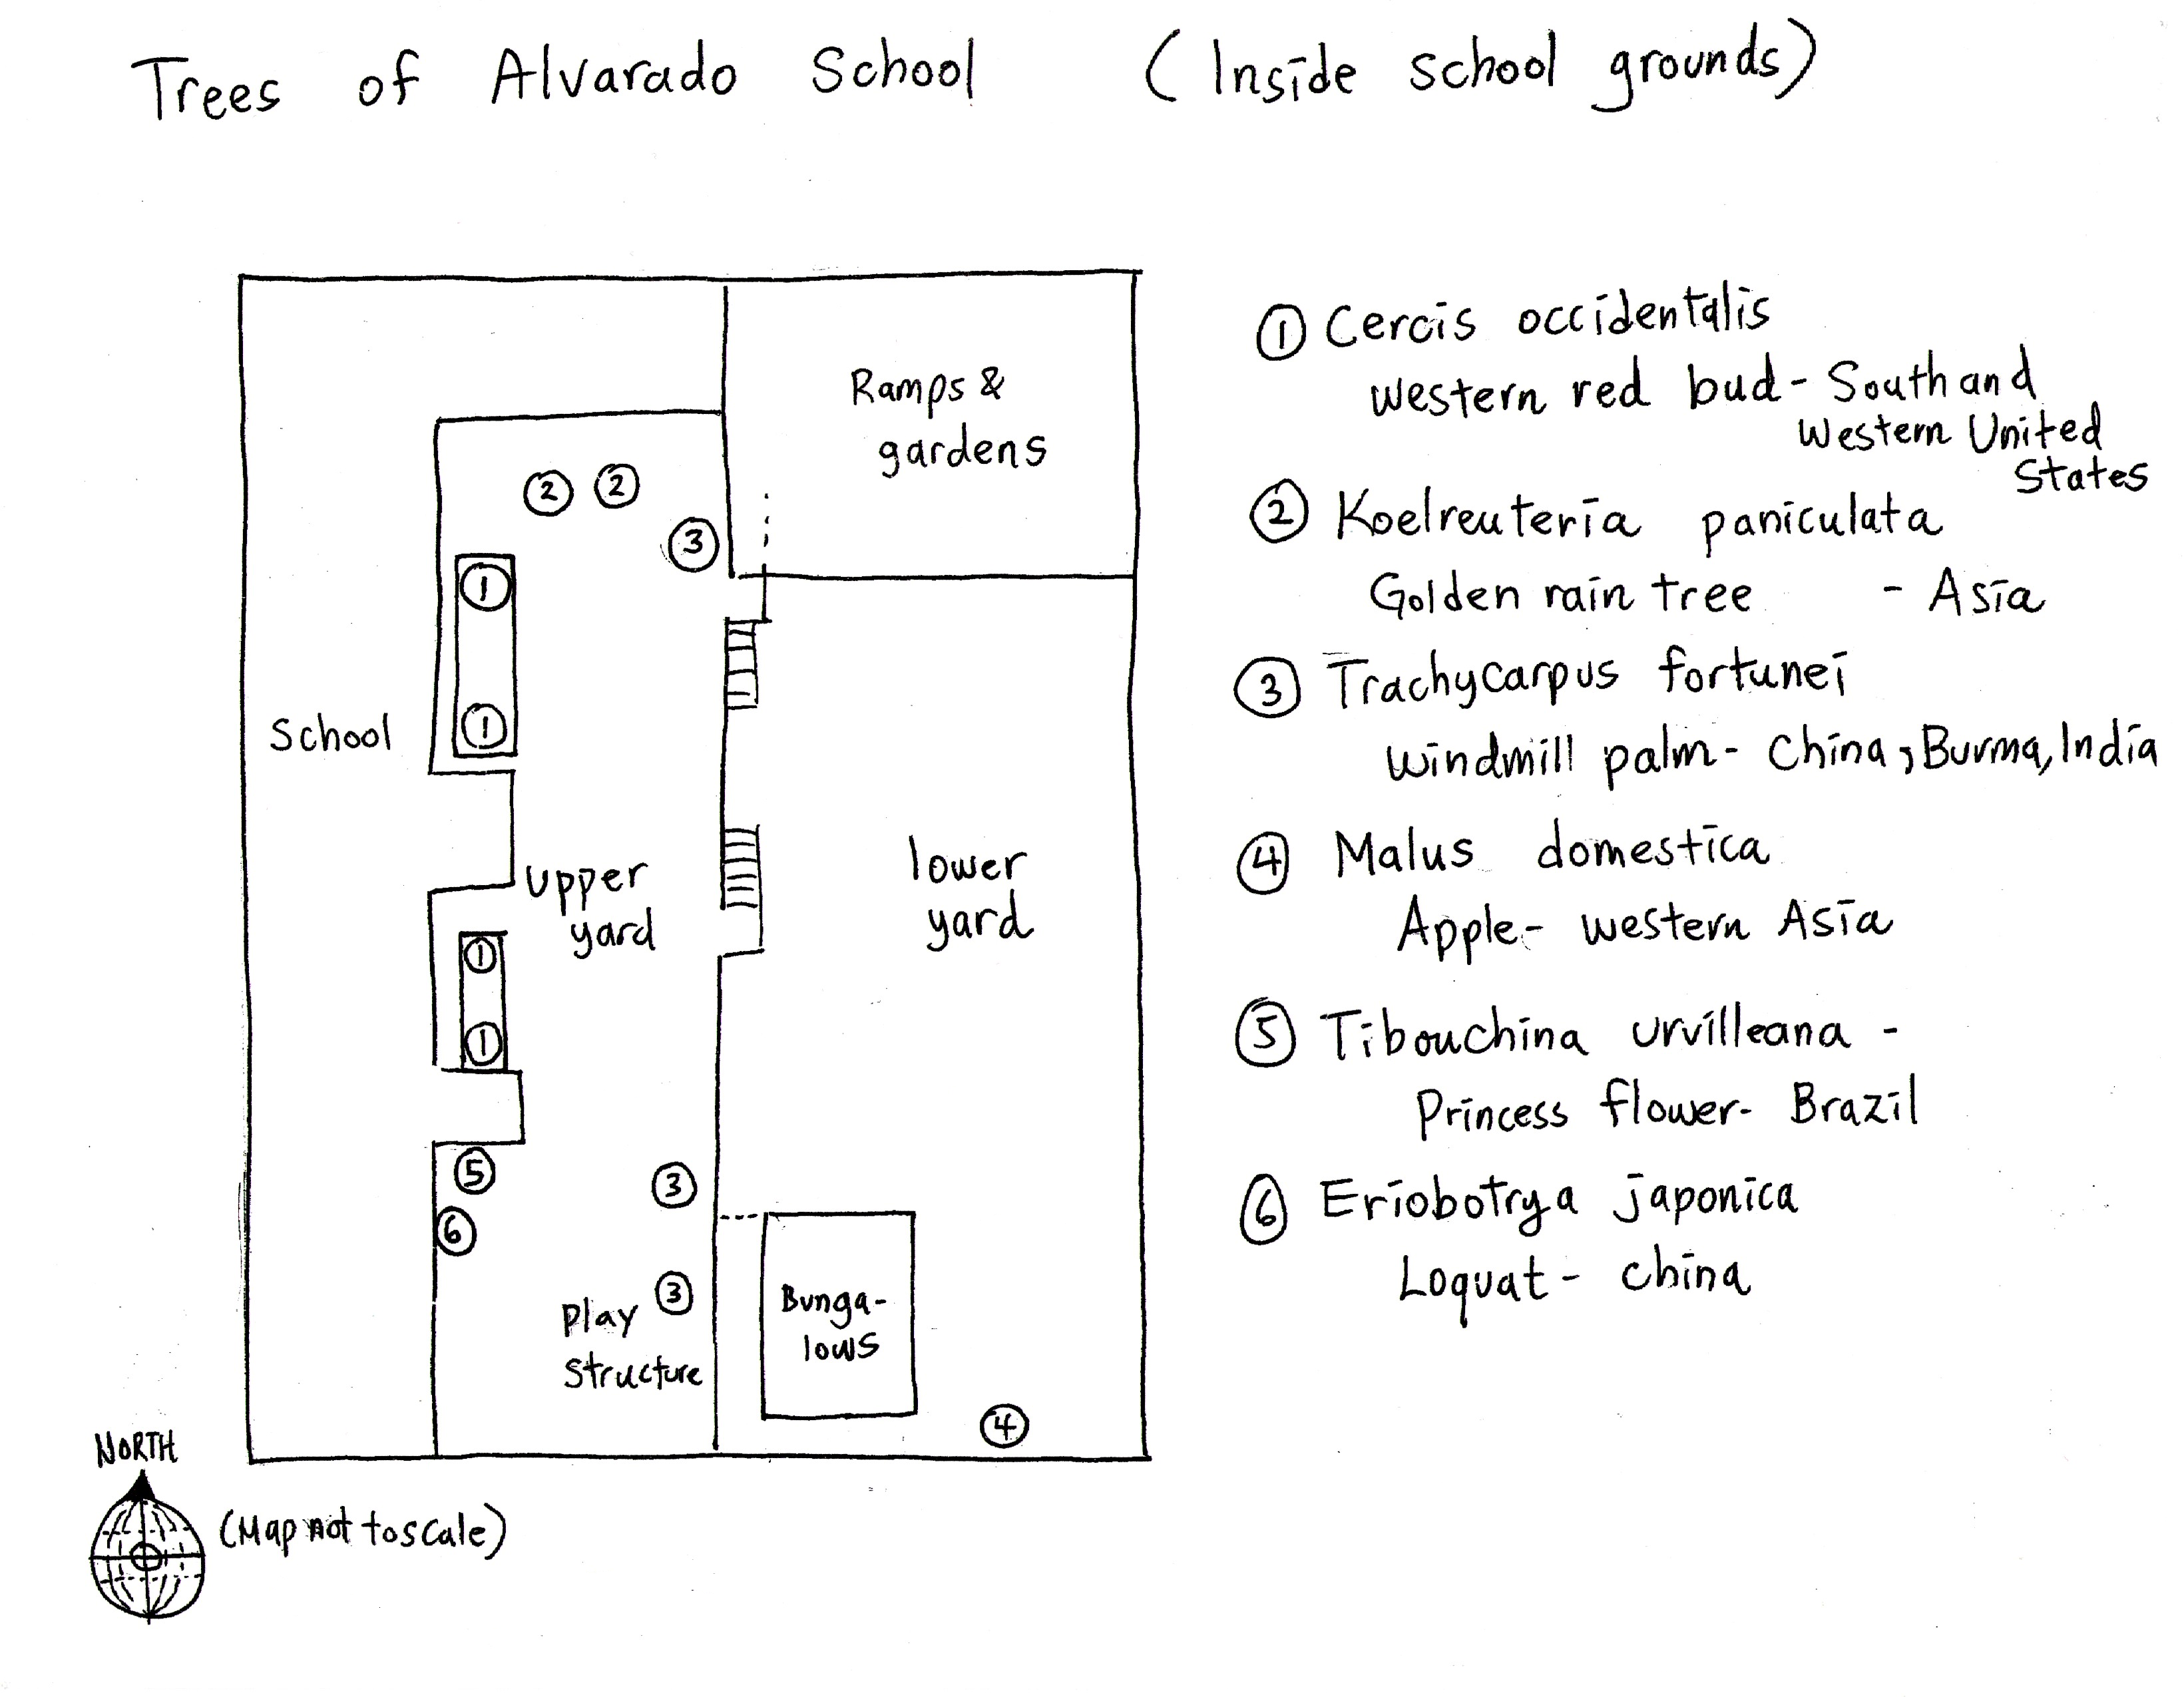 Trees of Alvarado School (Inside school grounds)
Ramps &
gardens
2 2
3
1
1
School
upper
yard
lower
yard
1
1
5
6
3
3
Play
structure
Bunga-
lows
4
NORTH
(Map not to scale)
1 Cercis occidentalis
western red bud - South and
Western United
States
2 Koelreuteria paniculata
Golden rain tree - Asia
3 Trachycarpus fortunei
windmill palm - China, Burma, India
4 Malus domestica
Apple - western Asia
5 Tibouchina urvilleana -
Princess flower - Brazil
6 Eriobotrya japonica
Loquat - china